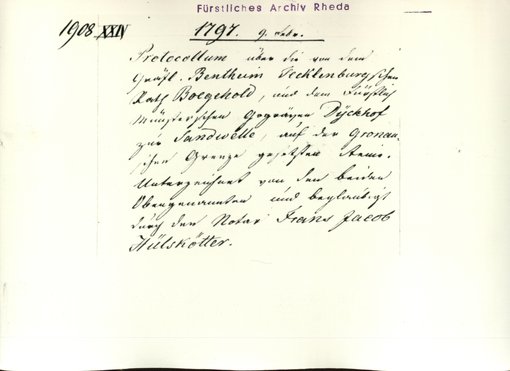 Fürstliches Archiv Rheda
1908 XXIV 1797. 9. Febr.
Protocollum über die von dem
Gräfl. Bentheim Tecklenburgschen
Rath Boegehold, und dem Fürstlich
Münsterschen Gografen Dyckhof
zur Sandwelle, auf der Gronau-
schen Grenze gesetzten
Unterzeichnet von den beiden
Obengenannten und beglaubigt
durch den Notar Frans Jacob
Hülskötter.